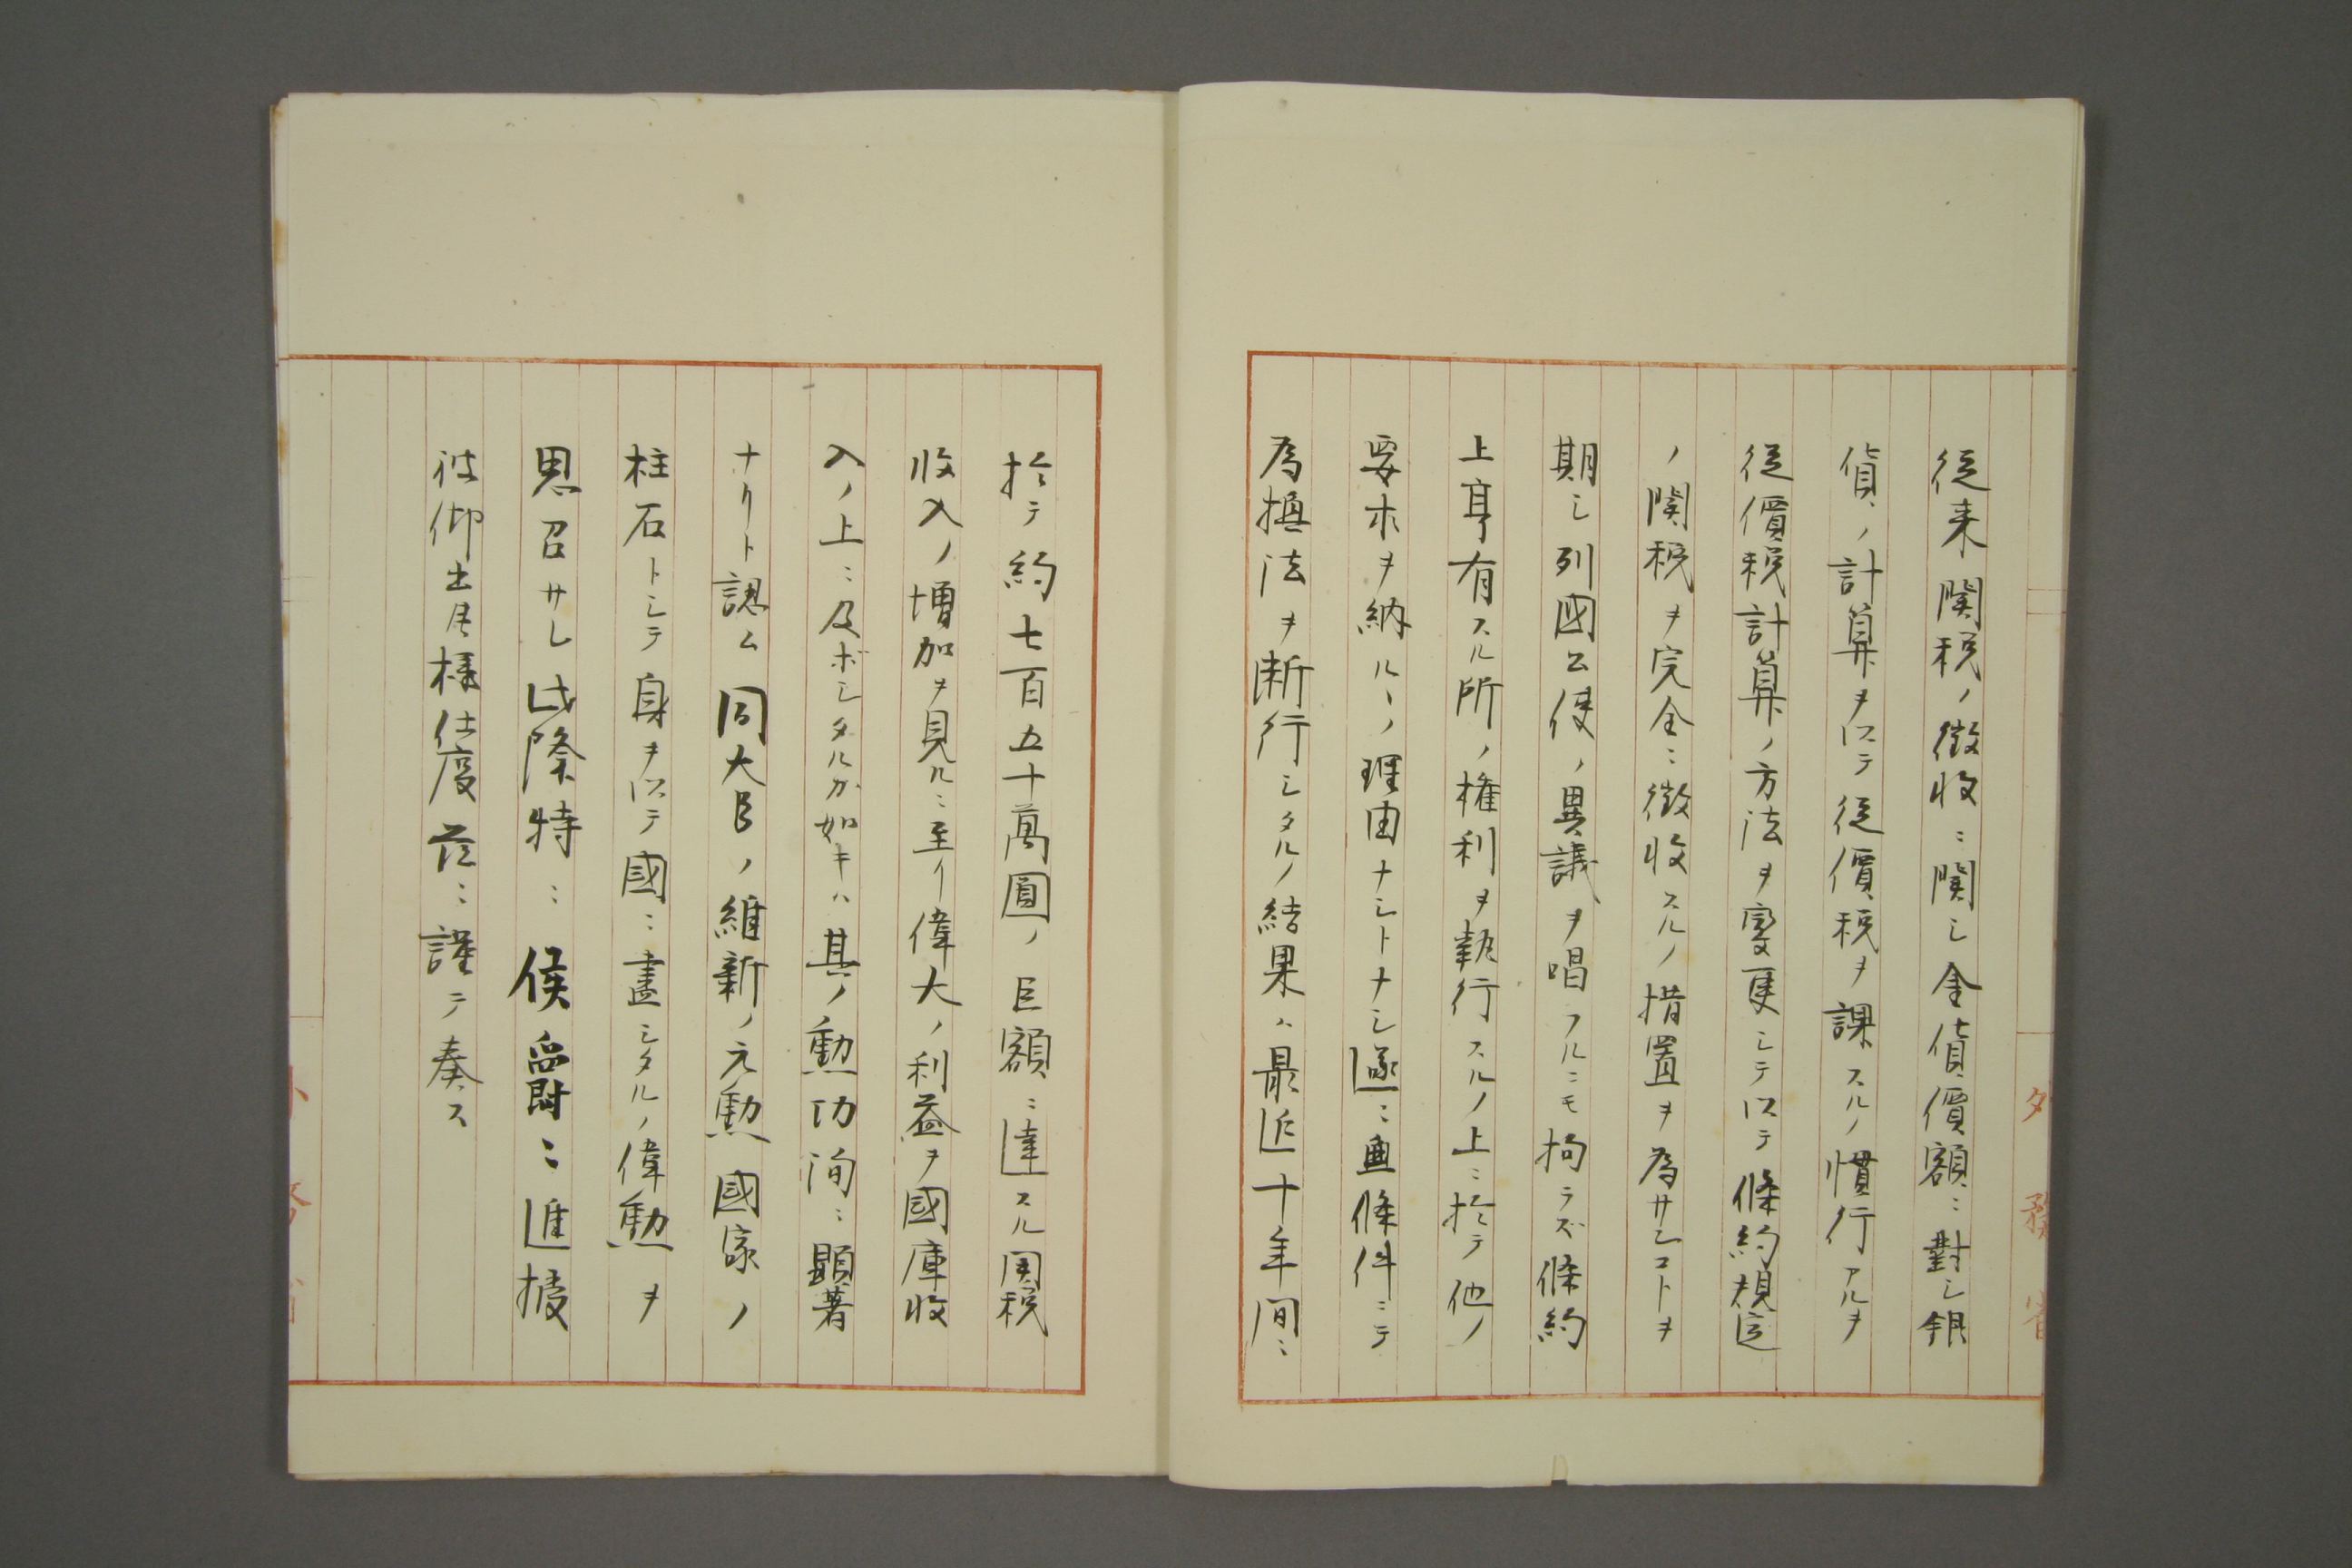 従来関税ノ徴收ニ関シ金貨價額ニ對シ銀
貨ノ計算ヲ以テ従價税ヲ課スルノ慣行アルヲ
従價税計算ノ方法ヲ変更シテ以テ條約規定
ノ関税ヲ完全ニ徴收スルノ措置ヲ為サンコトヲ
期シ列國公使ノ異議ヲ唱フルニモ拘ラズ條約
上享有スル所ノ権利ヲ執行スルノ上ニ於テ他ノ
要求ヲ納ルヽノ理由ナシトナシ遂ニ無條件ニテ
為換法ヲ断行シタルノ結果ハ最近十年間ニ
外務省
於テ約七百五十萬圓ノ巨額ニ達スル関税
收入ノ増加ヲ見ルニ至リ偉大ノ利益ヲ國庫收
入ノ上ニ及ボシタルガ如キハ其ノ勳功洵ニ顕著
ナリト認ム同大臣ノ維新ノ元勲國家ノ
柱石トシテ身ヲ以テ國ニ盡シタルノ偉勲ヲ
思召サレ此際特ニ侯爵ニ進授
被仰出度様仕度茲ニ謹テ奏ス